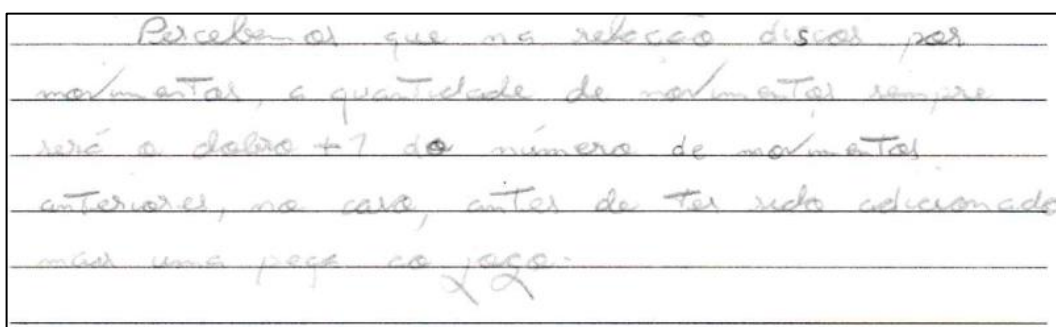 Percebemos que na relação discos por
movimentos, a quantidade de movimentos sempre
será o dobro +1 do número de movimentos
anteriores, no caso, antes de ter sido adicionado
mais uma peça ao jogo.